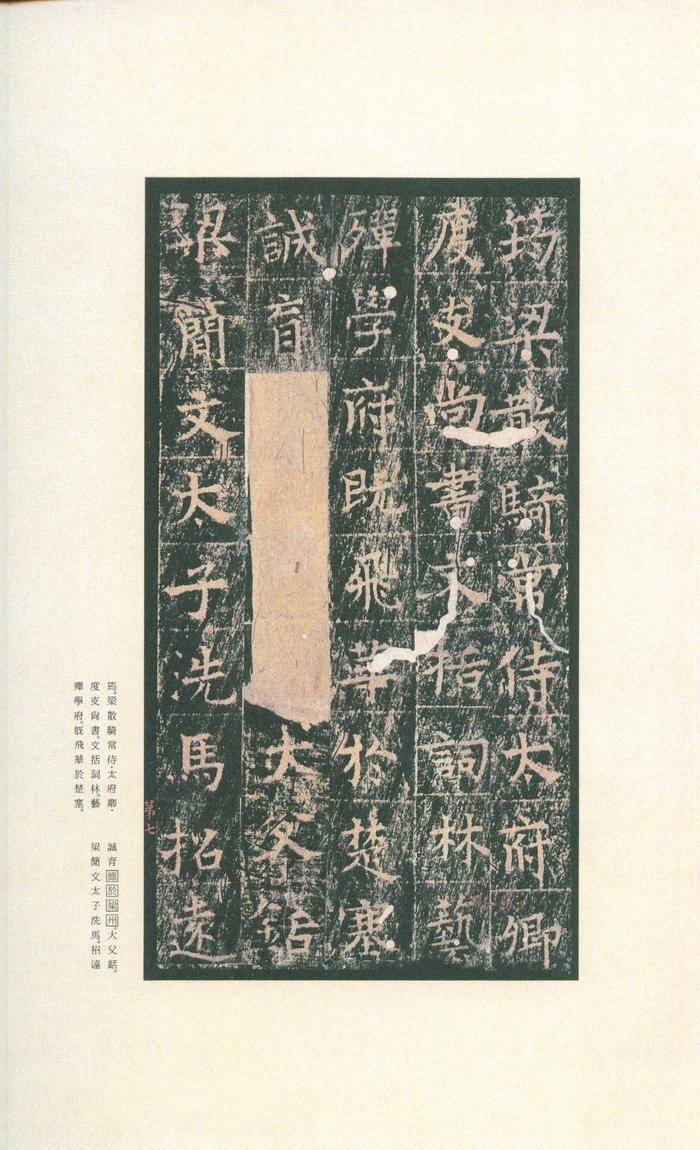 筠梁散騎常侍太府卿
度支尚書文括詞林藝
殫學府既飛華於楚塞
誠育大父銛
梁簡文太子洗馬招遠
第七
筠。梁散騎常侍·太府卿·
度支尚書。文括詞林。藝
殫學府。旣飛華於楚塞。
誠育德於梁州。大父銛。
梁簡文太子洗馬。招遠